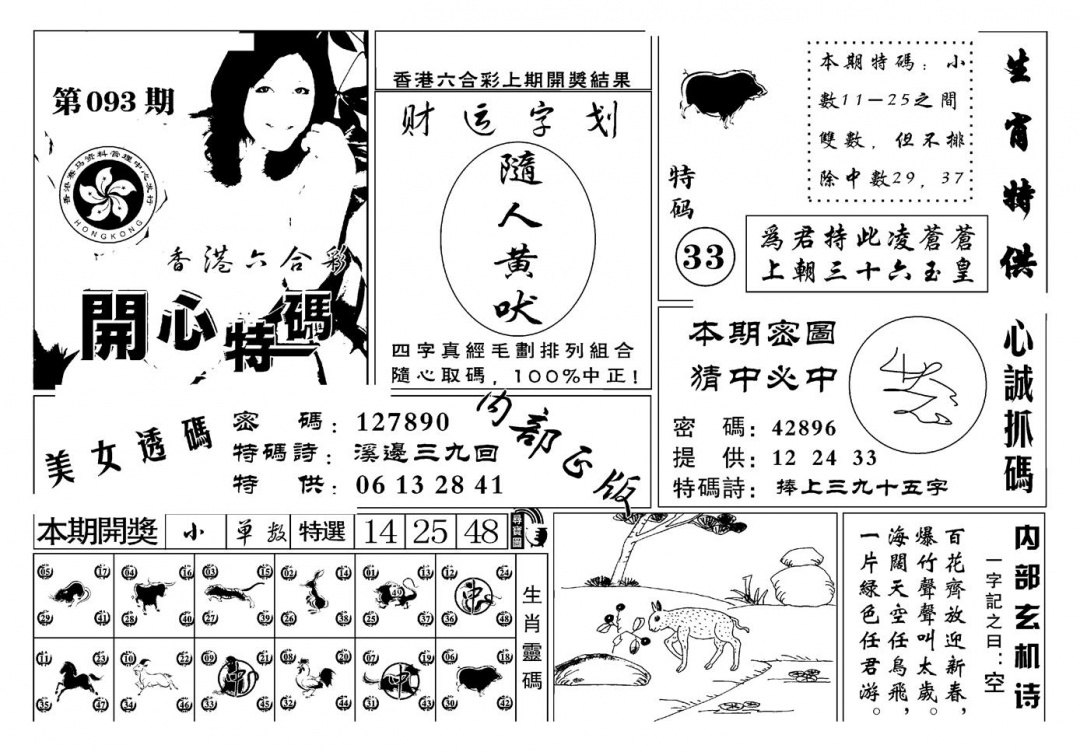 第093期
香港賽马资料管理中心发行
HONGKONG
香港六合彩
開心特碼
香港六合彩上期開獎結果
财运字划
隨人黄吠
四字真經毛劃排列組合
隨心取碼，100%中正！
特码
33
本期特碼：小
數11－25之間
雙數，但不排
除中數29，37
為君持此凌蒼蒼
上朝三十六玉皇
生宵特供
美女透碼
密 碼：127890
特碼詩：溪邊三九回
特 供：06 13 28 41
内部正版
本期密圖
猜中必中
密 碼：42896
提 供：12 24 33
特碼詩：捧上三九十五字
心誠抓碼
本期開獎 小 单数 特選 14 25 48
05 17 04 16 03 15 02 14 01 13 12 24
49 中
29 41 28 40 27 39 26 38 25 37 36
11 23 10 22 09 21 08 20 07 19 06 18
中 中
35 47 34 46 33 45 32 44 31 43 30 42
生肖靈碼
内部玄机诗
一字記之曰：空
百花齊放迎新春，
爆竹聲聲叫太歲。
海闊天空任鳥飛，
一片綠色任君游。